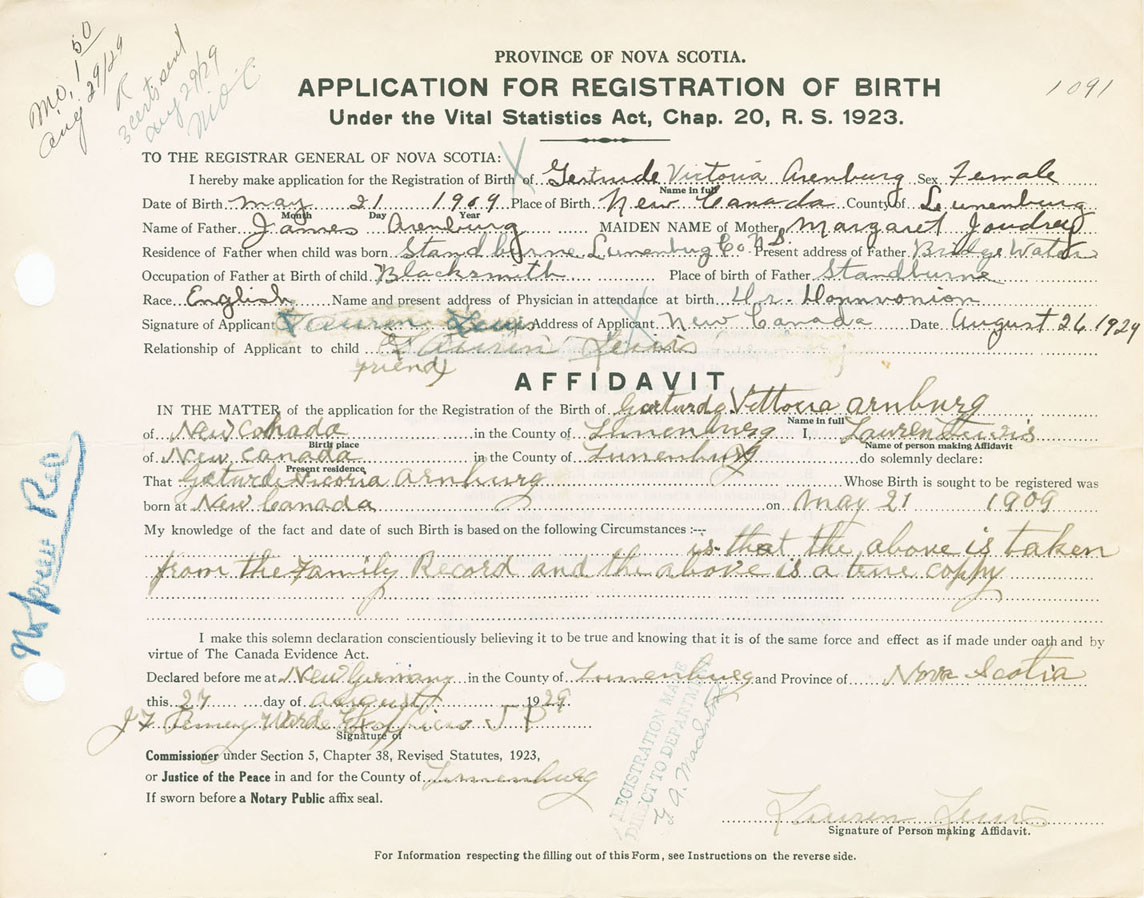 M.O. 1 50
Aug 29/29
R
3 certs sent
Aug 29/29
M.O.C.
1091
PROVINCE OF NOVA SCOTIA.
APPLICATION FOR REGISTRATION OF BIRTH
Under the Vital Statistics Act, Chap. 20, R. S. 1923.
TO THE REGISTRAR GENERAL OF NOVA SCOTIA:
I hereby make application for the Registration of Birth of Gertrude Victoria Arenburg Sex Female
Name in full
Date of Birth May 21 1909 Place of Birth New Canada County of Lunenburg
Month Day Year
Name of Father James Arenburg MAIDEN NAME of Mother Margaret Joudrey
Residence of Father when child was born Standburne Lunenburg Co NS Present address of Father Bridge Water
Occupation of Father at Birth of child Blacksmith Place of birth of Father Standburne
Race English Name and present address of Physician in attendance at birth
Signature of Applicant Lauren Lewis Address of Applicant New Canada Date August 26 1929
Relationship of Applicant to child Lauren Lewis
friend
AFFIDAVIT
IN THE MATTER of the application for the Registration of the Birth of Gerturde Vittoria Arnburg
Name in full
of New Canada in the County of Lunenburg I, Lauren Lewis
Birth place Name of person making Affidavit
of New Canada in the County of Lunenburg do solemnly declare:
Present residence
That Arnburg Whose Birth is sought to be registered was
born at New Canada on May 21 1909
My knowledge of the fact and date of such Birth is based on the following Circumstances :--
is that the above is taken
from the Family Record and the above is a true coppy
I make this solemn declaration conscientiously believing it to be true and knowing that it is of the same force and effect as if made under oath and by
virtue of The Canada Evidence Act.
Declared before me at New Germany in the County of Lunenburg and Province of Nova Scotia
this 27 day of August 1929.
J P
Signature of
Commissioner under Section 5, Chapter 38, Revised Statutes, 1923,
or Justice of the Peace in and for the County of Lunenburg
If sworn before a Notary Public affix seal.
REGISTRATION MADE
DIRECT TO DEPARTMENT
Lauren Lewis
Signature of Person making Affidavit.
For Information respecting the filling out of this Form, see Instructions on the reverse side.